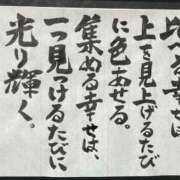 比べる幸せは、
上を見上げるたび
に色あせる。
集める幸せは、
一つ見つけるたびに
光り輝く。